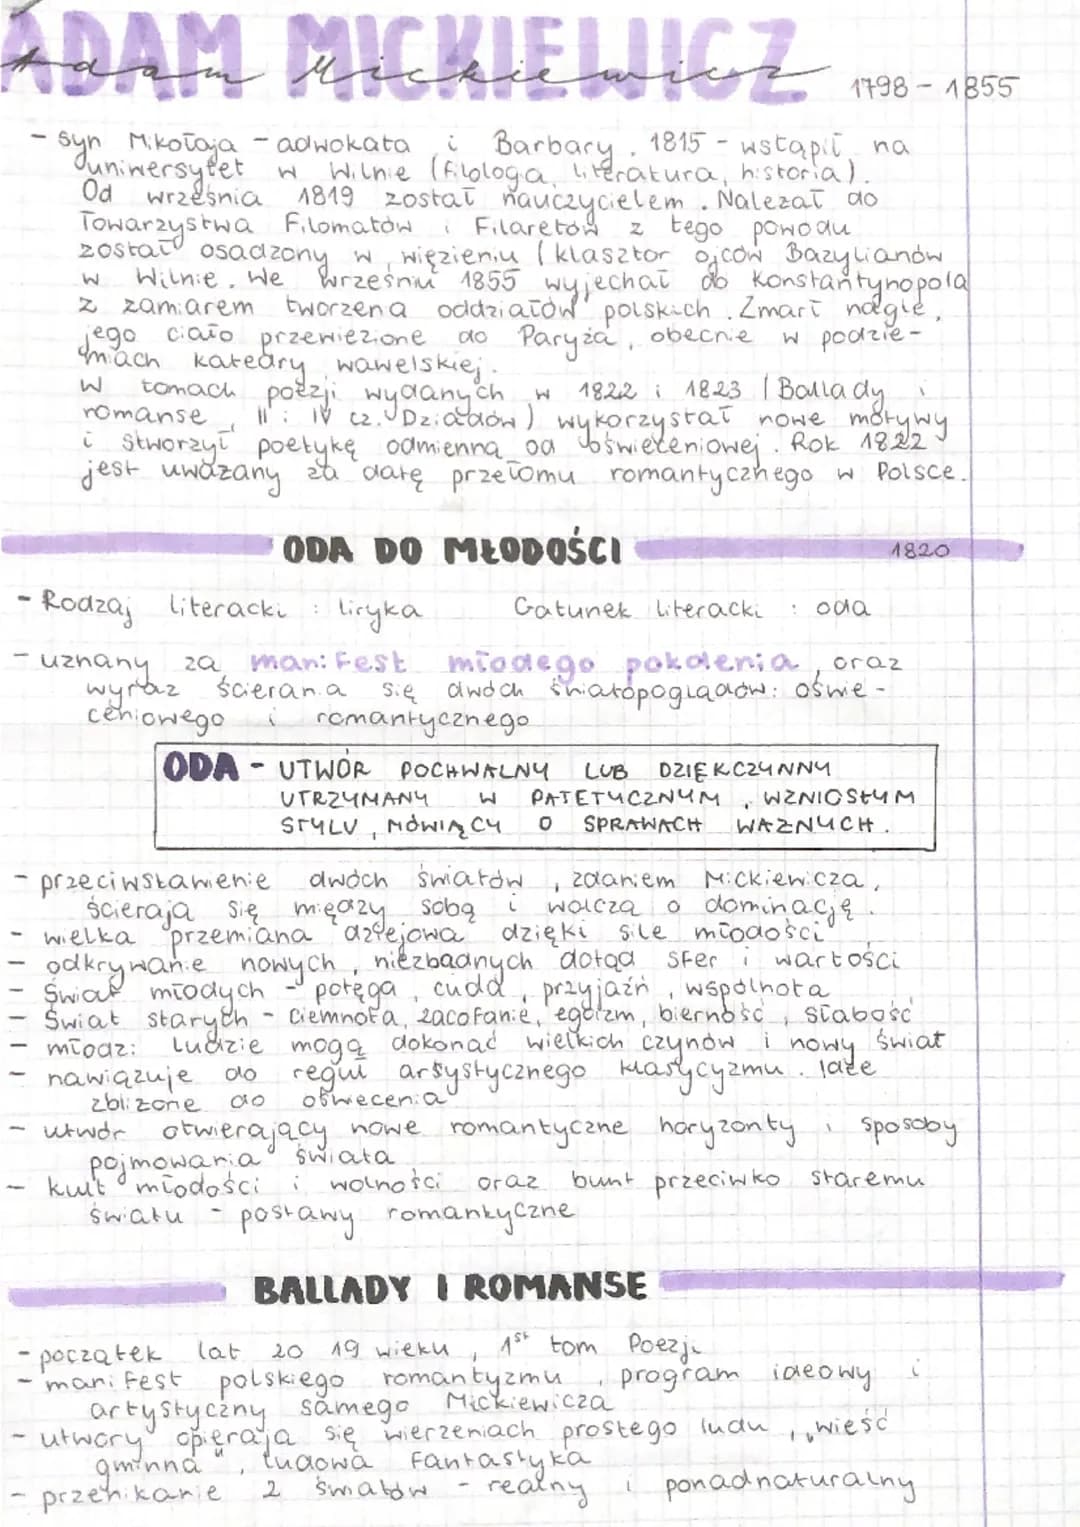 ADAM MICKIEWICZ
Adam Mickiewicz 1798 - 1855
- syn Mikołaja - adwokata i Barbary. 1815 - wstąpił na
uniwersytet w Wilnie (filologa, literatura, historia).
Od września 1819 został nauczycielem. Należał do
Towarzystwa Filomatów i Filaretów z tego powodu
został osadzony w więzieniu (klasztor ojców Bazylianów
w Wilnie. We wrześniu 1855 wyjechał do Konstantynopola
z zamiarem tworzena oddziałów polskich. Zmarł nagle,
jego ciało przewiezione do Paryża, obecnie w podzie-
miach katedry wawelskiej.
W tomach poezji wydanych w 1822 i 1823 (Ballady i
romanse, II i IV cz. Dziadów) wykorzystał nowe motywy
i stworzył poetykę odmienną od oświeceniowej. Rok 1822
jest uważany za datę przełomu romantycznego w Polsce.
ODA DO MŁODOŚCI 1820
- Rodzaj literacki : liryka Gatunek literacki : oda
- uznany za manifest młodego pokolenia, oraz
wyraz ścierania się dwóch światopoglądów: oświe-
ceniowego i romantycznego
ODA - UTWÓR POCHWALNY LUB DZIĘKCZYNNY
UTRZYMANY W PATETYCZNYM, WZNIOSŁYM
STYLU, MÓWIĄCY O SPRAWACH WAŻNYCH.
- przeciwstawienie dwóch światów, zdaniem Mickiewicza,
ścierają się między sobą i walczą o dominację.
- wielka przemiana dziejowa dzięki sile młodości
- odkrywanie nowych, niezbadnych dotąd sfer i wartości
- Świat młodych - potęga, cuda, przyjaźń, wspólnota
- Świat starych - ciemnota, zacofanie, egoizm, bierność, słabość
- młodzi ludzie mogą dokonać wielkich czynów i nowy świat
- nawiązuje do reguł artystycznego klasycyzmu. Idee
zbliżone do oświecenia
- utwór otwierający nowe romantyczne horyzonty i sposoby
pojmowania świata
- kult młodości i wolności oraz bunt przeciwko staremu
światu - postawy romantyczne
BALLADY I ROMANSE
- początek lat 20 19 wieku, 1st tom Poezji
- manifest polskiego romantyzmu, program ideowy i
artystyczny samego Mickiewicza
- utwory opierają się wierzeniach prostego ludu, „wieść
gminna", ludowa fantastyka
- przenikanie 2 światów - realny i ponadnaturalny